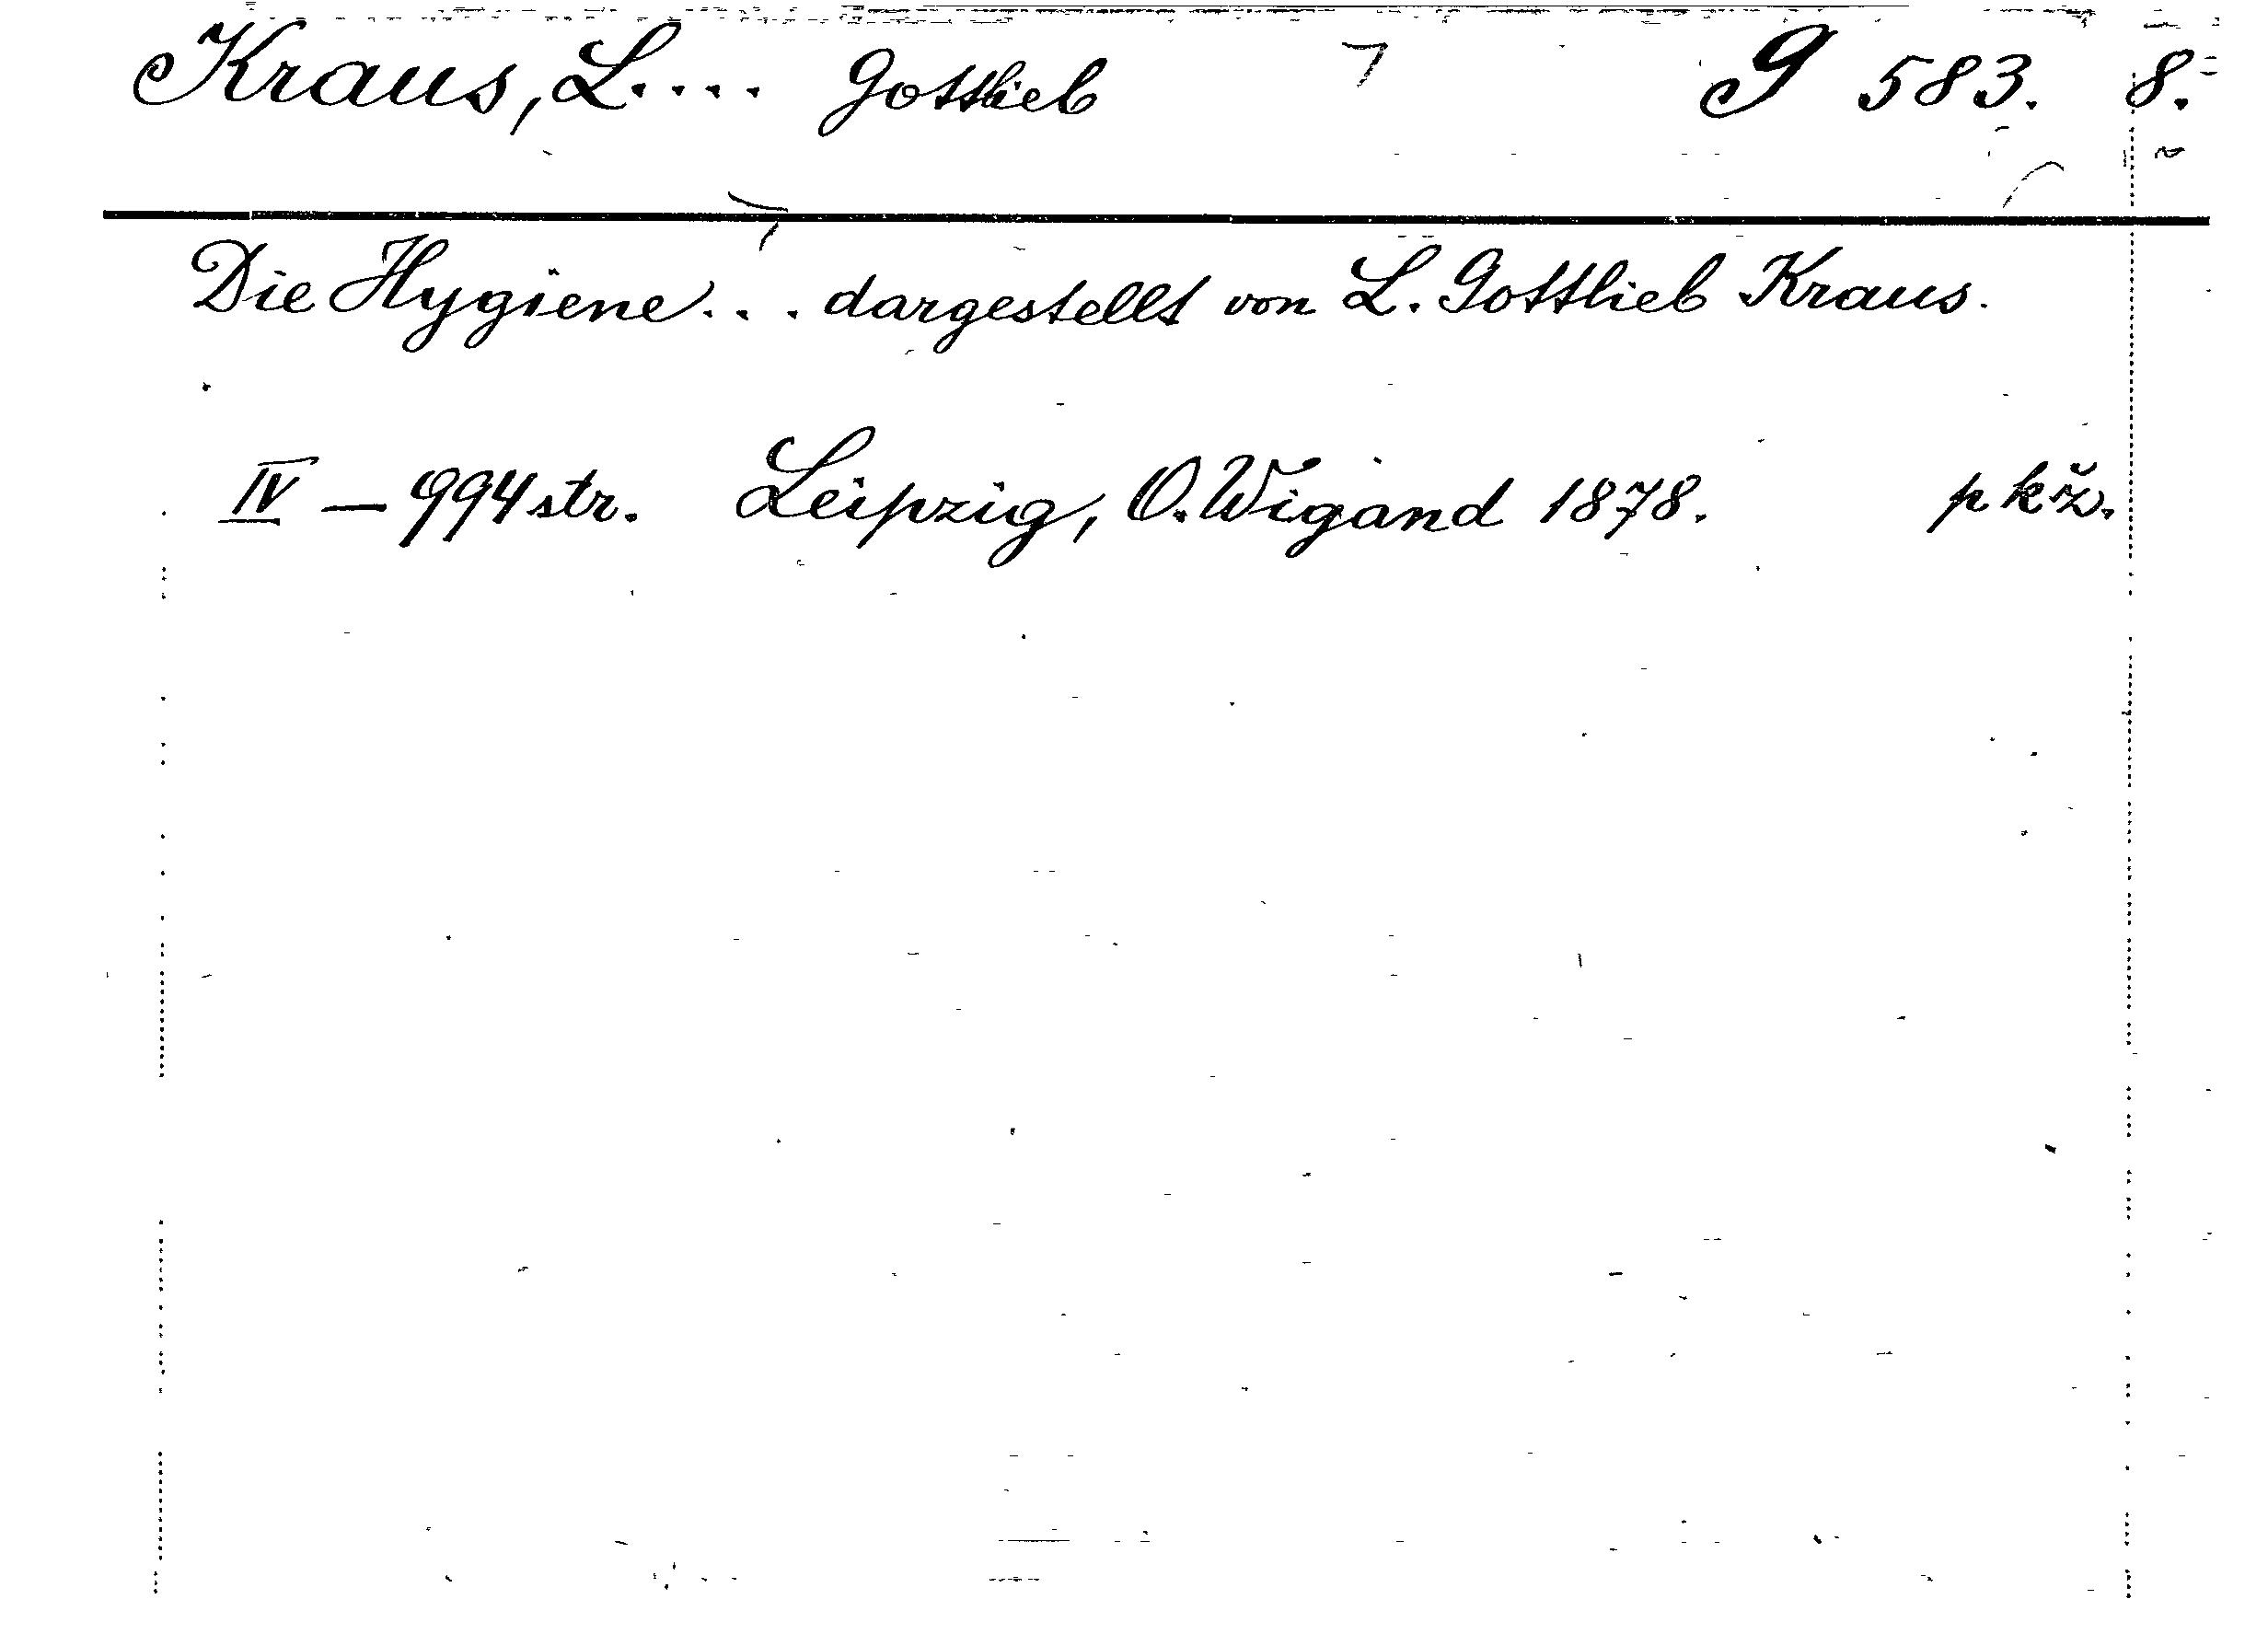 Kraus, L.... Gottlieb 9 583. 8.
Die Hygiene... dargestellt von L. Gottlieb Kraus.
IV — 994 str. Leipzig, O. Wigand 1878. pkž.